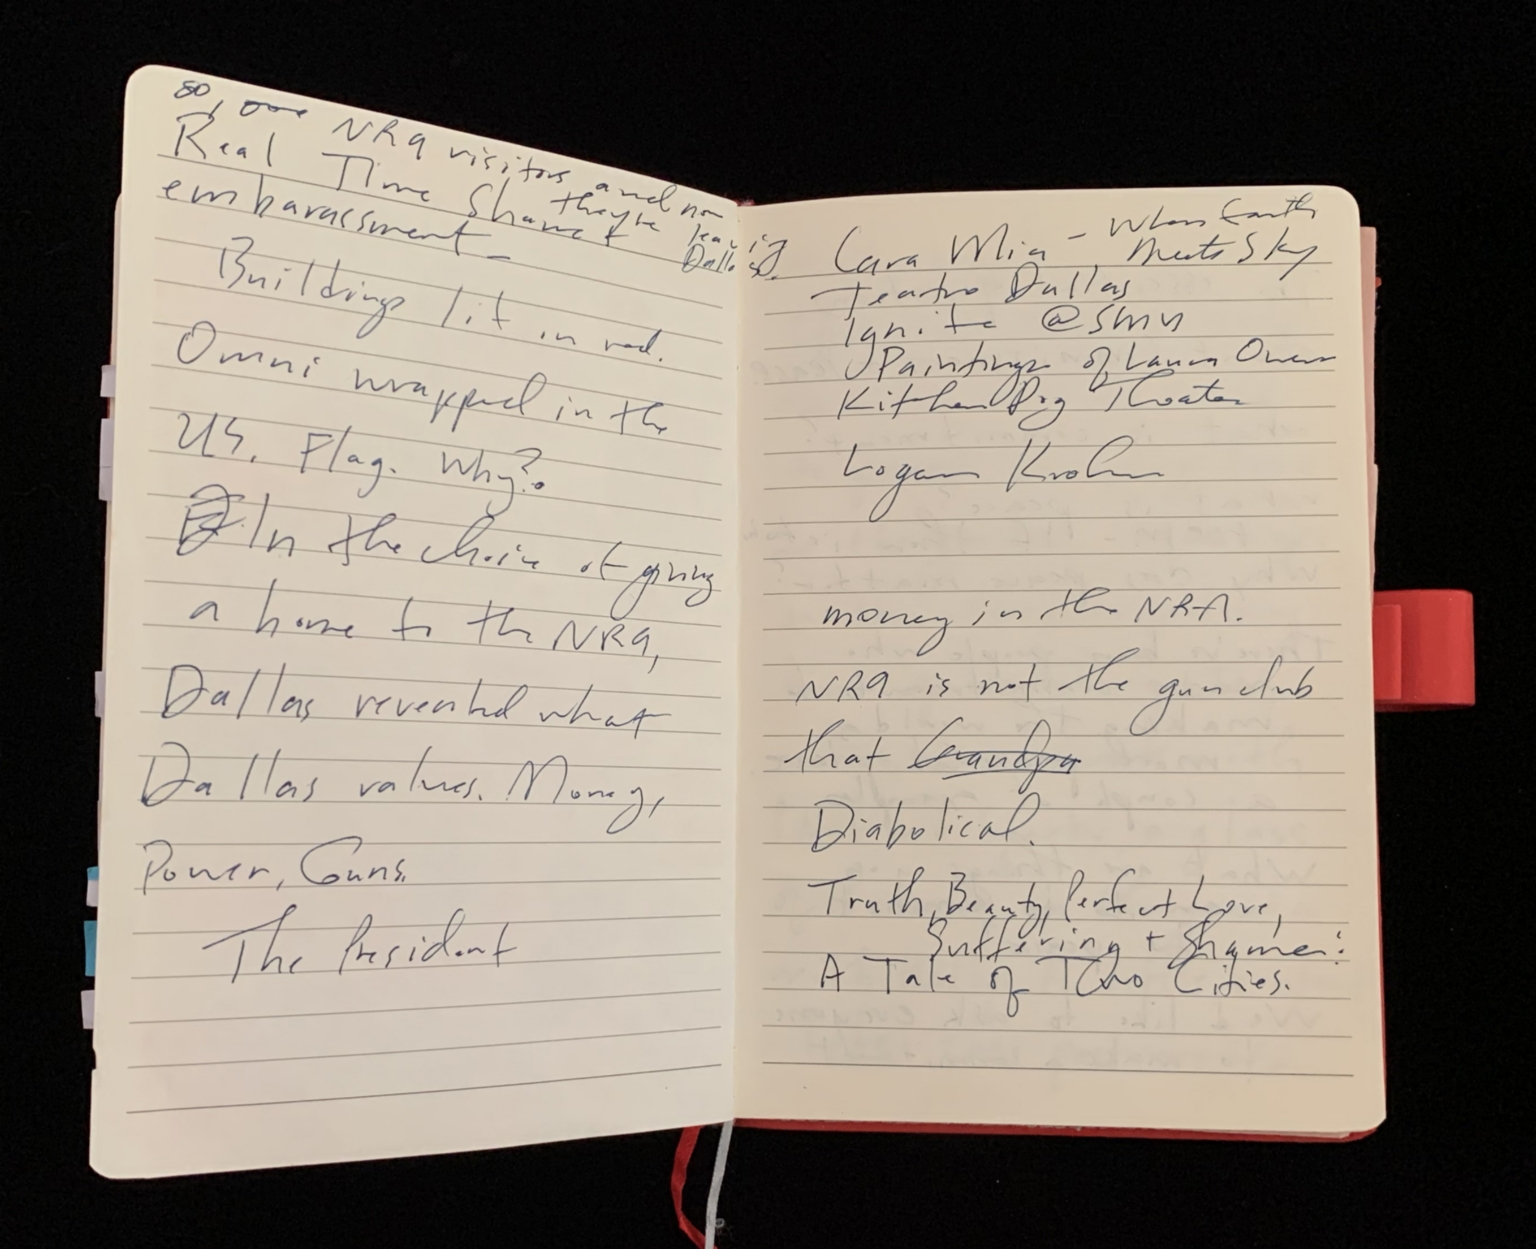 80,000 NRA visitors and now
they're leaving
Dallas.
Real Time Shame &
embarassment –
Buildings lit in red.
Omni wrapped in the
US. Flag. Why?
In the choice of giving
a home to the NRA,
Dallas revealed what
Dallas values. Money,
Power, Guns.
The President
Cara Mia – When Earth
Meets Sky
Teatro Dallas
Ignite @SMU
Paintings of Laura Owens
Kitchen Dog Theater
Logan
money in the NRA.
NRA is not the gun club
that Grandpa
Diabolical.
Truth, Beauty, Perfect Love,
Suffering + Shame:
A Tale of Two Cities.